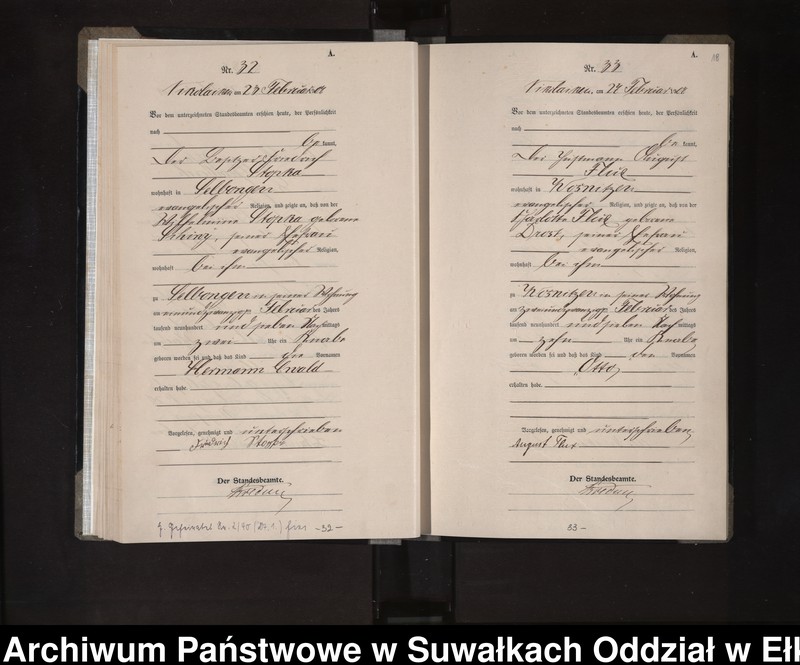 A.
Nr. 32
Nikolaiken, am 28 Februar 08
Vor dem unterzeichneten Standesbeamten erschien heute, der Persönlichkeit
nach
be kannt,
Der Besitzer Friedrich
Stopka
wohnhaft in Selbongen
evangelischer Religion, und zeigte an, daß von der
Wilhelmine Stopka geborene
seiner Ehefrau
evangelischer Religion,
wohnhaft bei ihm
zu Selbongen in seiner Wohnung
am Februar des Jahres
tausend neunhundert und sieben Nach mittags
um zwei Uhr ein Knabe
geboren worden sei und daß das Kind den Vornamen
Hermann Ewald
erhalten habe.
Vorgelesen, genehmigt und unterschrieben
Friedrich Stopka
Der Standesbeamte.
-32-
A.
18
Nr. 33
Nikolaiken, am Februar 08
Vor dem unterzeichneten Standesbeamten erschien heute, der Persönlichkeit
nach
be kannt,
Der August
wohnhaft in
evangelischer Religion, und zeigte an, daß von der
geborene
seiner Ehefrau
evangelischer Religion,
wohnhaft bei ihm
zu in seiner Wohnung
am Februar des Jahres
tausend neunhundert und sieben Nach mittags
um zehn Uhr ein Knabe
geboren worden sei und daß das Kind den Vornamen
Otto
erhalten habe.
Vorgelesen, genehmigt und unterschrieben
August
Der Standesbeamte.
33-
Archiwum Państwowe w Suwałkach Oddział w Ełk